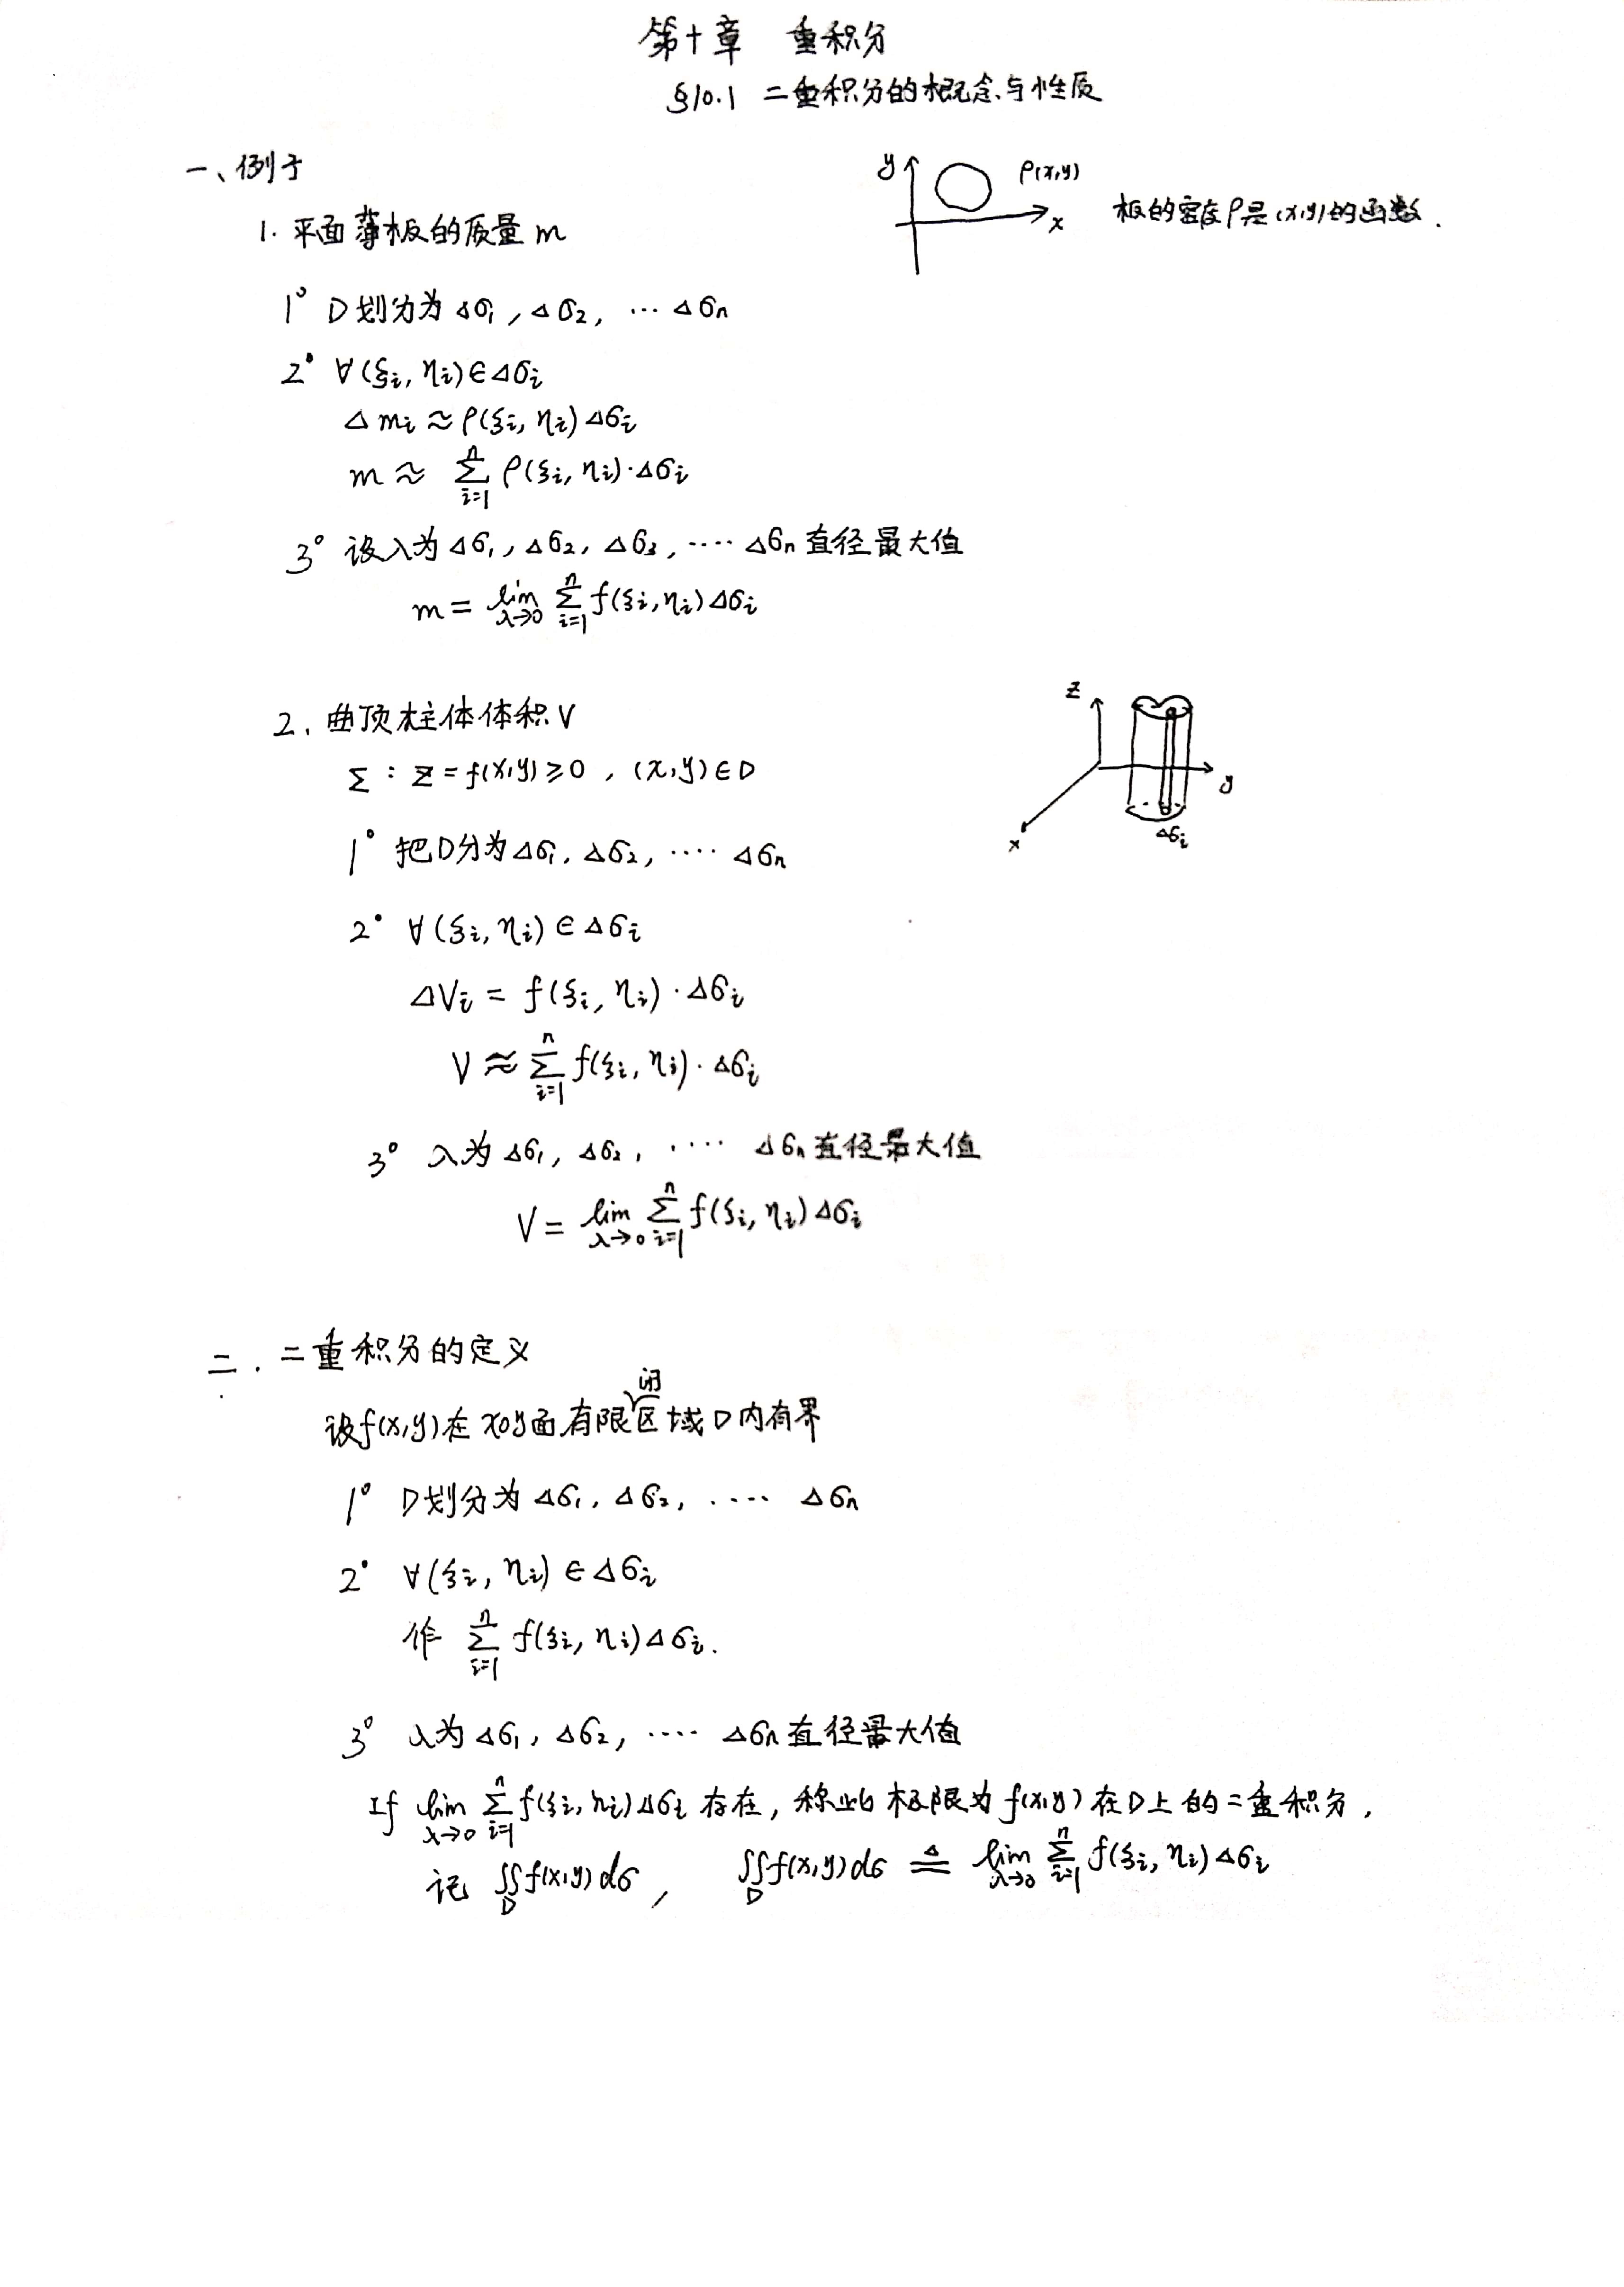 第十章 重积分
§10.1 二重积分的概念与性质
一、例子
y ρ(x,y)
x 板的密度ρ是(x,y)的函数.
1. 平面薄板的质量 m
1° D划分为 Δσ₁, Δσ₂, … Δσₙ
2° ∀(ξᵢ, ηᵢ)∈Δσᵢ
Δmᵢ ≈ ρ(ξᵢ, ηᵢ)Δσᵢ
m ≈ ∑ᵢ₌₁ⁿ ρ(ξᵢ, ηᵢ)·Δσᵢ
3° 设λ为Δσ₁, Δσ₂, Δσ₃, …. Δσₙ直径最大值
m = lim_{λ→0} ∑ᵢ₌₁ⁿ f(ξᵢ, ηᵢ)Δσᵢ
2. 曲顶柱体体积V
Σ : z = f(x,y) ≥ 0 , (x,y)∈D
z
y
x
Δσᵢ
1° 把D分为Δσ₁, Δσ₂, …. Δσₙ
2° ∀(ξᵢ, ηᵢ) ∈ Δσᵢ
ΔVᵢ = f(ξᵢ, ηᵢ)·Δσᵢ
V ≈ ∑ᵢ₌₁ⁿ f(ξᵢ, ηᵢ)·Δσᵢ
3° λ为Δσ₁, Δσ₂, …. Δσₙ直径最大值
V = lim_{λ→0} ∑ᵢ₌₁ⁿ f(ξᵢ, ηᵢ)Δσᵢ
二. 二重积分的定义
设f(x,y)在xoy面有限闭区域D内有界
1° D划分为Δσ₁, Δσ₂, …. Δσₙ
2° ∀(ξᵢ, ηᵢ) ∈ Δσᵢ
作 ∑ᵢ₌₁ⁿ f(ξᵢ, ηᵢ)Δσᵢ.
3° λ为Δσ₁, Δσ₂, …. Δσₙ直径最大值
If lim_{λ→0} ∑ᵢ₌₁ⁿ f(ξᵢ, ηᵢ)Δσᵢ 存在, 称此极限为f(x,y)在D上的二重积分,
记 ∬_D f(x,y)dσ, ∬_D f(x,y)dσ ≜ lim_{λ→0} ∑ᵢ₌₁ⁿ f(ξᵢ, ηᵢ)Δσᵢ